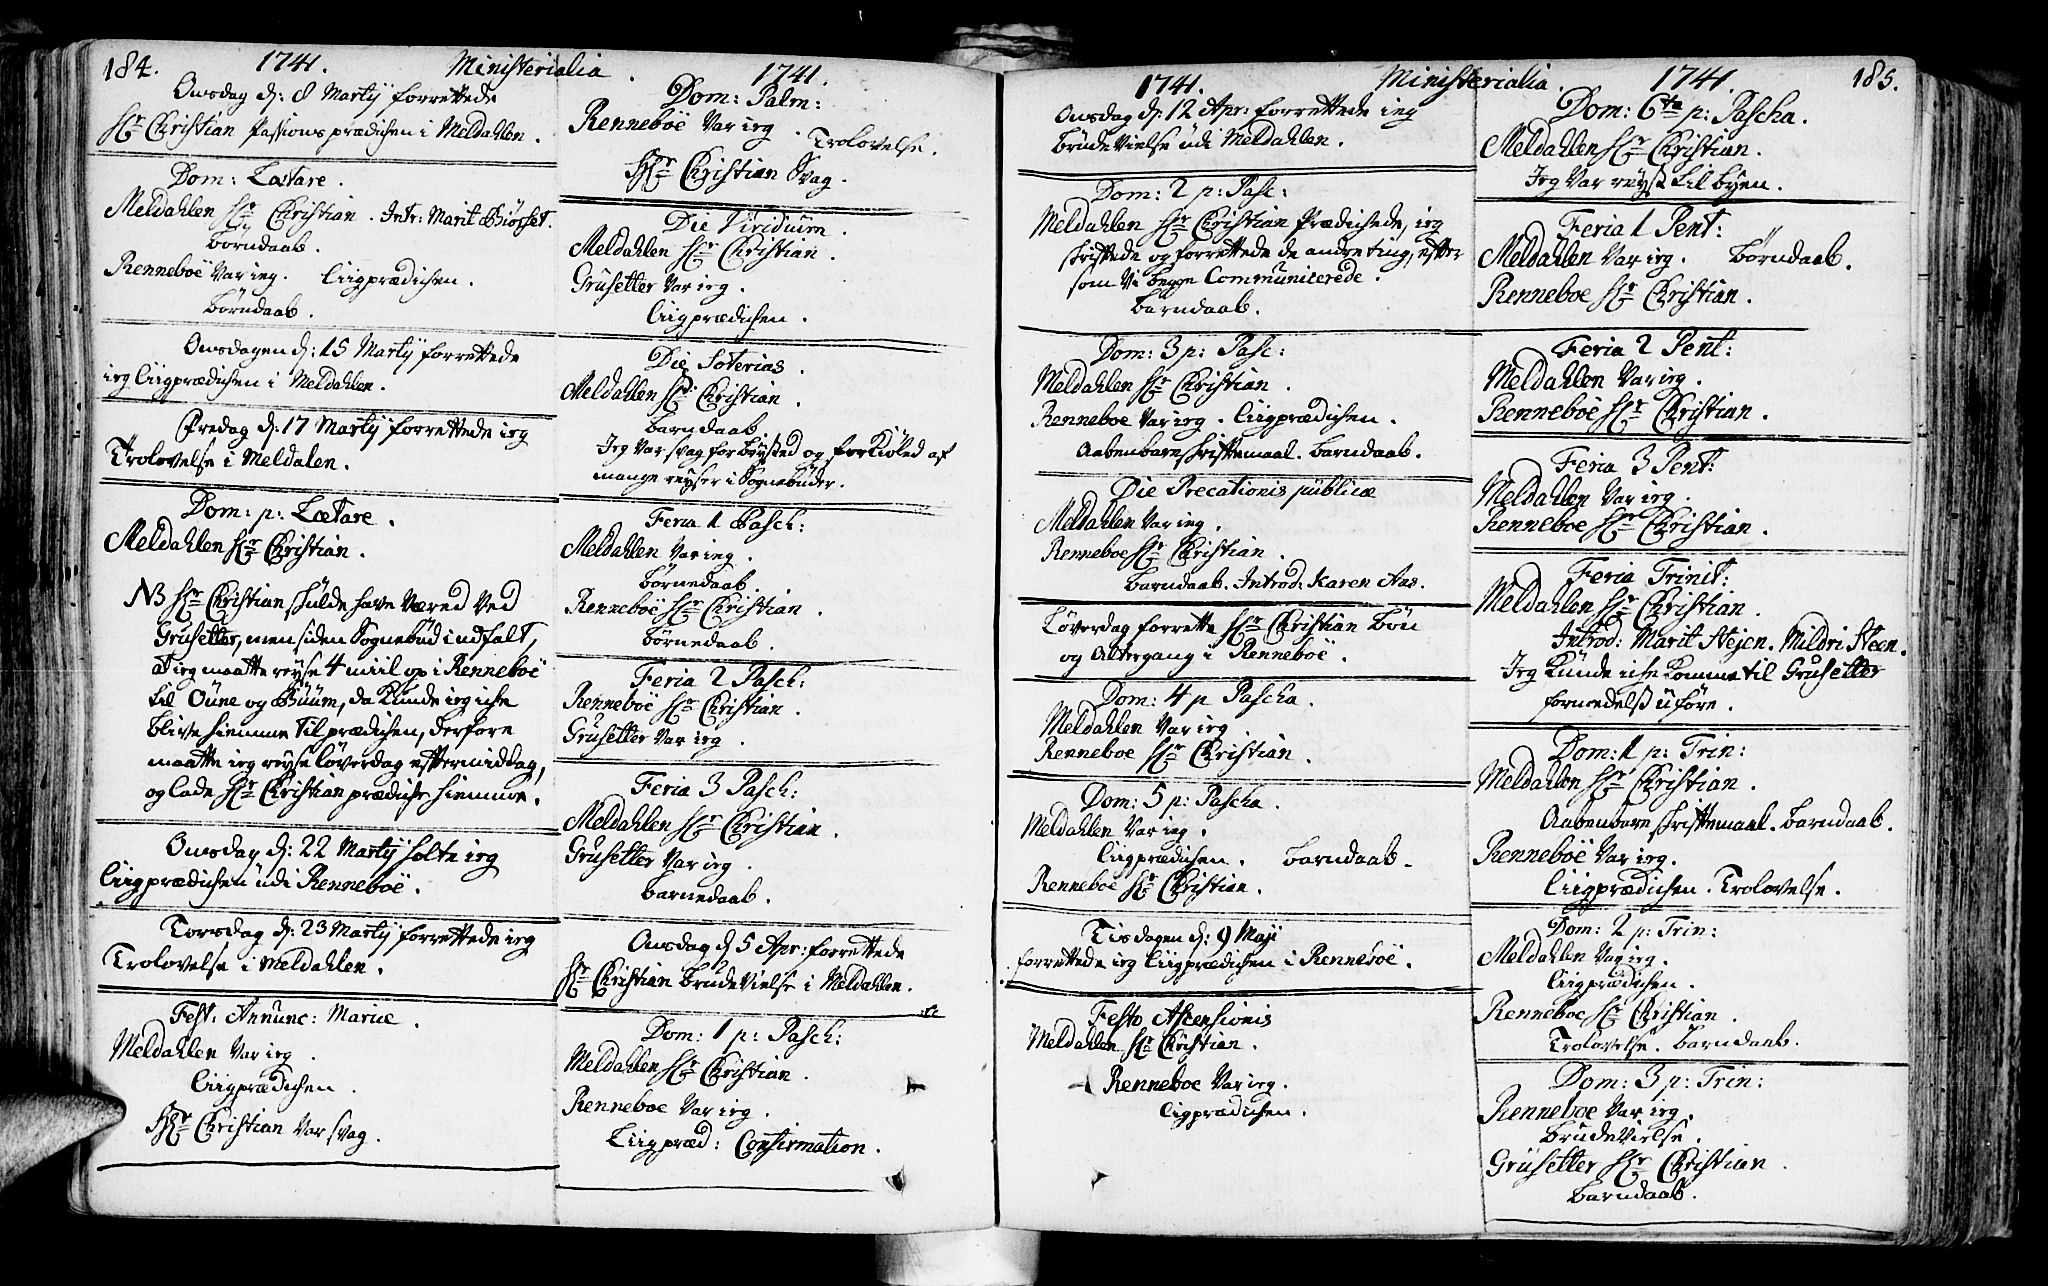 184. 1741. Ministerialia. 1741.
Onsdag d: 8 Martÿ forrettede
Hr Christian Passions prædichen i Meldahlen.
Dom: Lætare.
Meldahlen Hr Christian. Intr: Marit Biösset.
Borndaab.
Renneboë Var ieg. Liigprædichen.
Börndaab.
Onsdagen d: 15 Martÿ forrettede
ieg Liigprædichen i Meldahlen.
Fredag d: 17 Martÿ forrettede ieg
Trolovelse i Meldalen.
Dom: p: Lætare.
Meldahlen Hr Christian.
NB Hr Christian skulde have Væred Ved
Grusetter, men siden Sognebud indfalt,
at ieg maatte reyse 4 miil op i Renneboë
til Oüne og Büüm, da Kunde ieg iche
blive hiemme til prædichen, derfore
maatte ieg reyse löverdag eftermiddag,
og lade Hr Christian prædiche hiemme.
Onsdag d: 22 Martÿ holte ieg
Liigprædichen üdi Renneboë.
Torsdag d: 23 Martÿ forrettede ieg
Trolovelse i Meldahlen.
Fest: Annunc: Mariæ.
Meldahlen Var ieg.
Liigprædichen.
Hr Christian Var svag.
Dom: Palm:
Renneboë Var ieg. Trolovelse.
Hr Christian Svag.
Die Viridium.
Meldahlen Hr Christian.
Grusetter Var ieg.
Liigprædichen.
Die Soterias.
Meldahlen Hr Christian.
barndaab
Jeg Var svag for bryst og forkiöled af
mange reyser i Sognebuder.
Feria 1 Pasch:
Meldahlen Var ieg.
Börnedaab.
Renneboë Hr Christian.
Börnedaab.
Feria 2 Pasch:
Renneboë Hr Christian.
Grusetter Var ieg.
Feria 3 Pasch:
Meldahlen Hr Christian.
Grusetter Var ieg.
barnedaab.
Onsdag d 5 Apr: forrettede
Hr Christian brudeVielse i Meldahlen.
Dom: 1 p: Pasch:
Meldahlen Hr Christian.
Renneboe Var ieg.
Liigpræd: Confirmation.
1741. Ministerialia. 1741. 185.
Onsdag d: 12 Apr: forrettede ieg
brude Vielse üdi Meldahlen.
Dom: 2 p: Pasc:
Meldahlen Hr Christian Prædichede, ieg
skriftede og forrettede de andre ting, efter
som Vi begge Communicerede.
barndaab.
Dom: 3 p: Pasc:
Meldahlen Hr Christian.
Renneboe Var ieg. Liigprædichen.
Aabenbare skriftemaal. barndaab.
Die Precationis publicæ
Meldahlen Var ieg.
Renneboe Hr Christian.
Barndaab. Introd: Karen Aas.
Löverdag forrette Hr Christian bön
og Altergang i Renneboë.
Dom: 4 p Pascha.
Meldahlen Var ieg
Renneboe Hr Christian.
Dom: 5 p: Pascha.
Meldahlen Var ieg.
Liigprædichen. barndaab.
Renneboe Hr Christian.
Tisdagen d: 9 Maji
forrettede ieg Liigprædichen i Renneboë.
Festo Ascensionis
Meldahlen Hr Christian.
Renneboe Var ieg.
Ligprædichen.
Dom: 6ta p: Pascha.
Meldahlen Hr Christian.
Jeg Var reyst til byen.
Feria 1 Pent:
Meldahlen Var ieg. Börndaab.
Renneboe Hr Christian.
Feria 2 Pent:
Meldahlen Var ieg.
Renneboe Hr Christian.
Feria 3 Pent:
Meldahlen Var ieg.
Renneboe Hr Christian.
Feria Trinit:
Meldahlen Hr Christian.
Introd: Marit Hejen. Mildri Steen.
Jeg Kunde iche Komme til Grusetter
formedelst üföre.
Dom: 1 p: Trin:
Meldahlen Hr Christian.
Aabenbare skriftemaal. barndaab.
Renneboë Var ieg.
Liigprædichen. Trolovelse.
Dom: 2 p: Trin:
Meldahlen Var ieg.
Liigprædichen.
Renneboe Hr Christian.
Trolovelse. barndaab.
Dom: 3 p: Trin:
Renneboe Var ieg.
BrudeVielse.
Grusetter Hr Christian.
Barndaab.